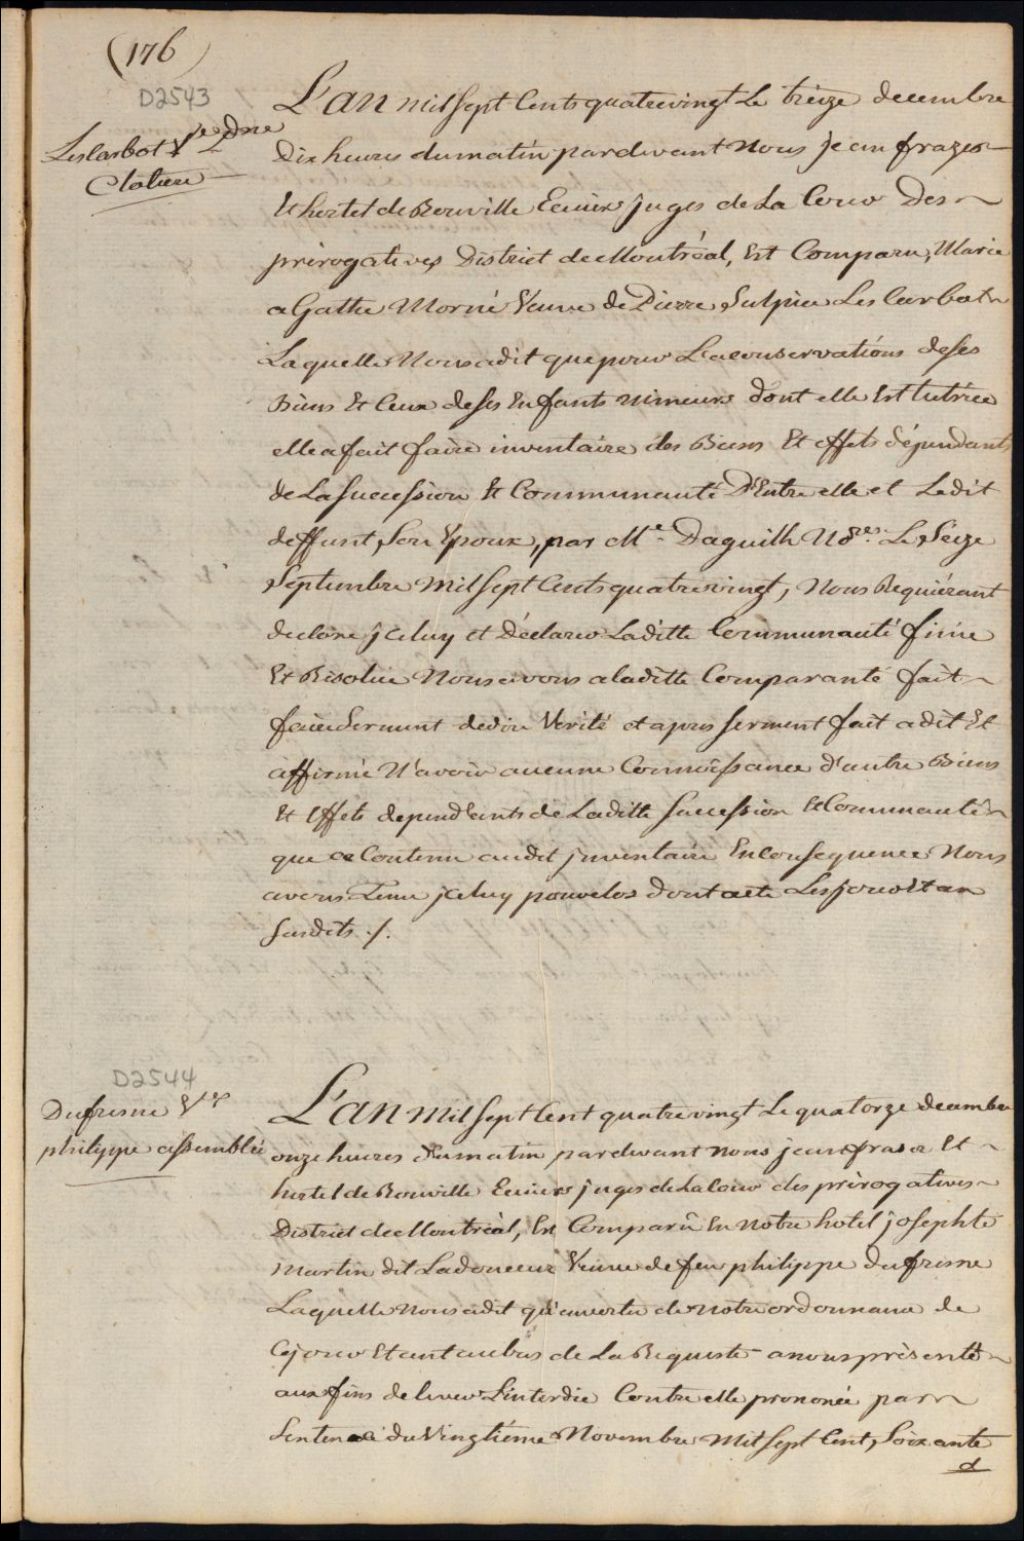 (176)
D2543
Lescarbot Ve
Cloture
L'an mil sept Cents quatrevingt Le treize decembre
Dix heures du matin pardevant Nous jean frazer
Et hertel de Rouville Ecuiers juges de La Cour Des
prérogatives District de Montréal, Est Comparu, Marie
aGathe Morné Veuve de Pierre Sulpice Lescarbot
Laquelle Nous a dit que pour La conservations de ses
Biens Et Ceux de ses Enfants mineurs dont elle Est tutrice
elle a fait faire inventaire des Biens Et effets dépendants
de La Sucession Et Communauté D'Entre elle et Ledit
deffunt Son Epoux, par Me Daguilh Nore Le Seize
Septembre Mil Sept Cents quatrevingt, Nous Requiérant
declore jceluy et Déclarer Laditte Communauté finie
Et Résolüe Nous avons a laditte Comparante fait
faire Serment de dire Verité et apres serment fait a dit Et
affirmé N'avoir aucune Connoissance d'autre Biens
Et Effets dependants de Laditte Sucession Et Communauté
que ce Contenu audit jnventaire En Consequence Nous
avons Tenu jceluy pour clos dont acte Les jour Et an
Susdits ./.
D2544
Dufresne Ve
philippe assemblée
L'an mil Sept Cent quatrevingt Le quatorze decembre
onze heures du matin pardevant nous jean fraser Et
hertel de Rouville Ecuiers juges de La Cour des prérogatives
District de Montréal, Est Comparû En Notre hotel josephte
Martin dit Ladouceur Veuve de feu philippe dufresne
Laquelle nous a dit qu'en vertu de Notre ordonnance de
Cejour Etant au bas de La Requeste a nous présenté
aux fins de lever L'interdie Contre elle prononcé par
Sentence du Vingtiéme Novembre Mil Sept Cent Soixante
d